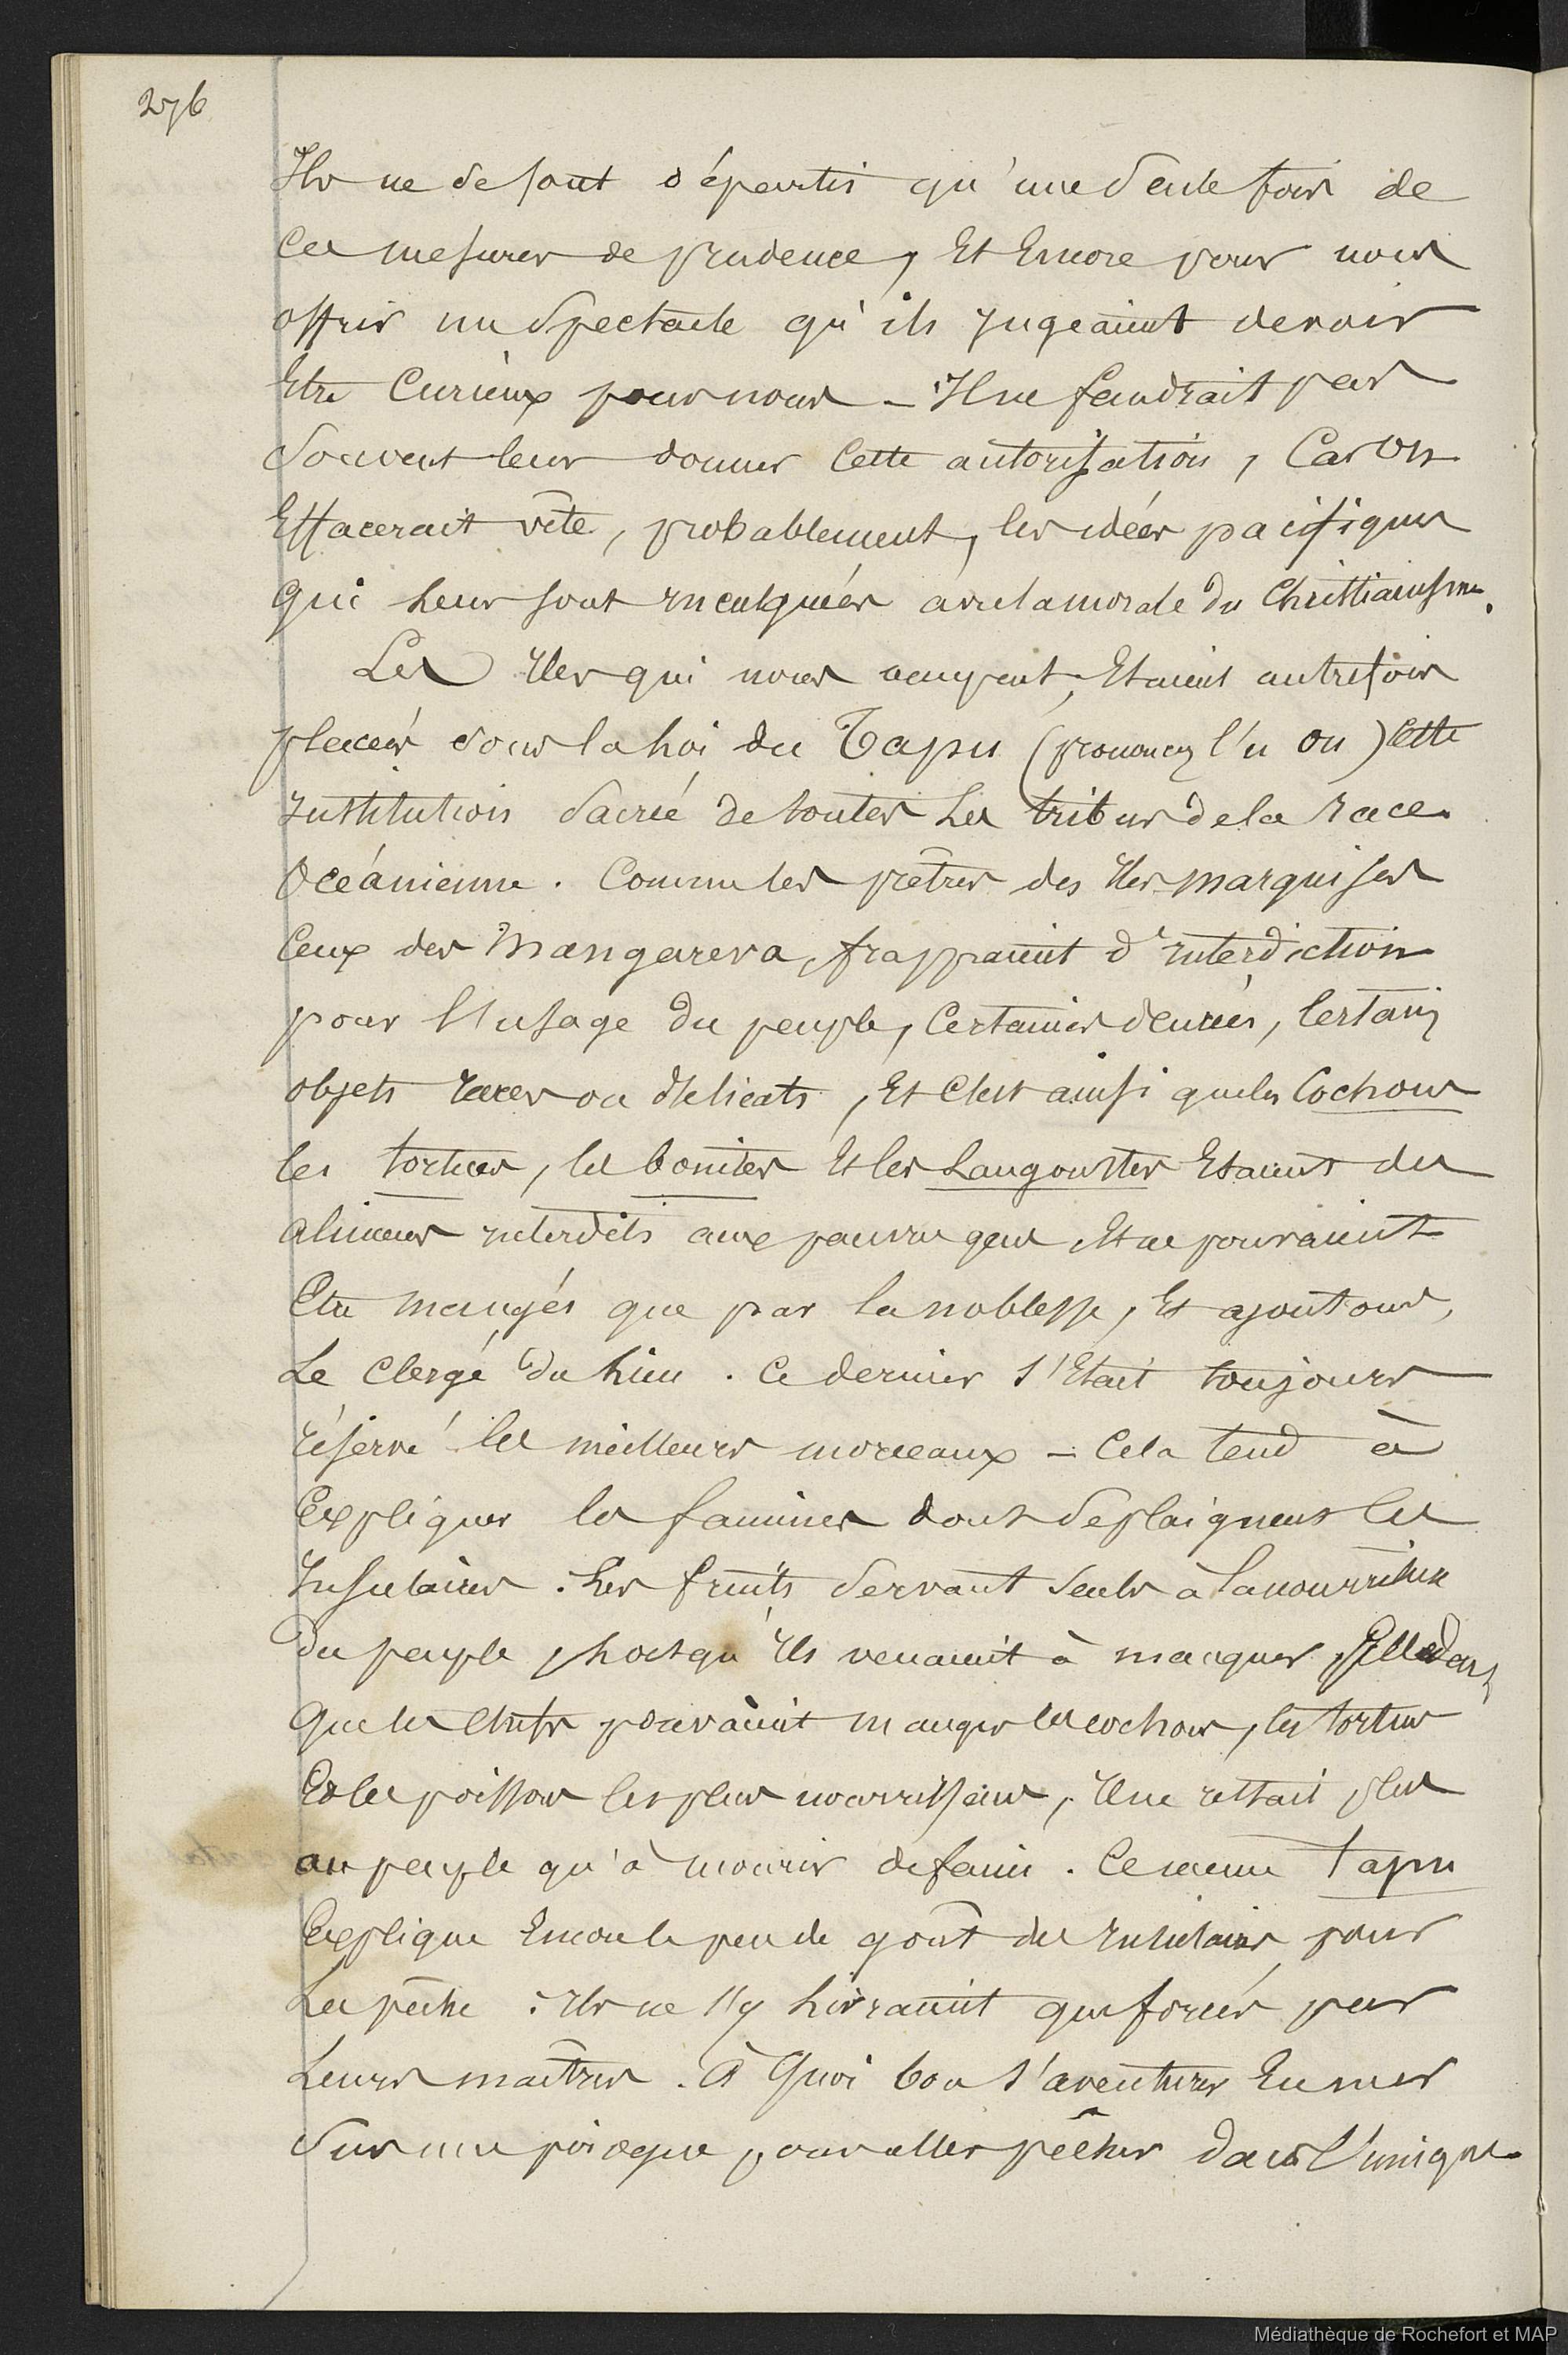 276
Ils ne se sont départis qu'une seule fois de
ces mesures de prudence, Et Encore pour nous
offrir un spectacle qu'ils jugeaient devoir
Etre Curieux pour nous _ Il ne faudrait pas
souvent leur donner Cette autorisation, Car on
Effacerait vite, probablement, les idées pacifiques
qui leur sont inculquées avec la morale du Christianisme.
Les Iles qui nous occupent, Etaient autrefois
placées sous la loi du Tapu (prononcez l'u ou) Cette
Institution sacrée de toutes les tribus de la race
Océanienne. Comme les prêtres des Iles marquises
Ceux des Mangareva, frappaient d'interdiction
pour l'usage du peuple, Certaines denrées, Certains
objets rares ou délicats, Et C'est ainsi que les Cochons
les tortues, les bonites Et les Langoustes Etaient des
alimens interdits aux pauvres gens Et ne pouvaient
Etre mangés que par la noblesse, Et ajoutons,
Le Clergé du lieu. Ce dernier s'Etait toujours
réservé les meilleurs morceaux _ Cela tend à
Expliquer les famines dont se plaignent les
Insulaires. Les fruits servant seuls à la nourriture
du peuple, lorsqu'ils venaient à manquer,
que les chefs pouvaient manger les cochons, les tortues
Et les poissons les plus nourrissans, Il ne restait plus
au peuple qu'à mourir de faim. Ce même Tapu
Explique Encore le peu de goût des Insulaires pour
La pêche : Ils ne s'y livraient que forcés par
Leurs maîtres. A Quoi bon s'aventurer En mer
sur une pirogue pour aller pêcher dans l'unique
Médiathèque de Rochefort et MAP